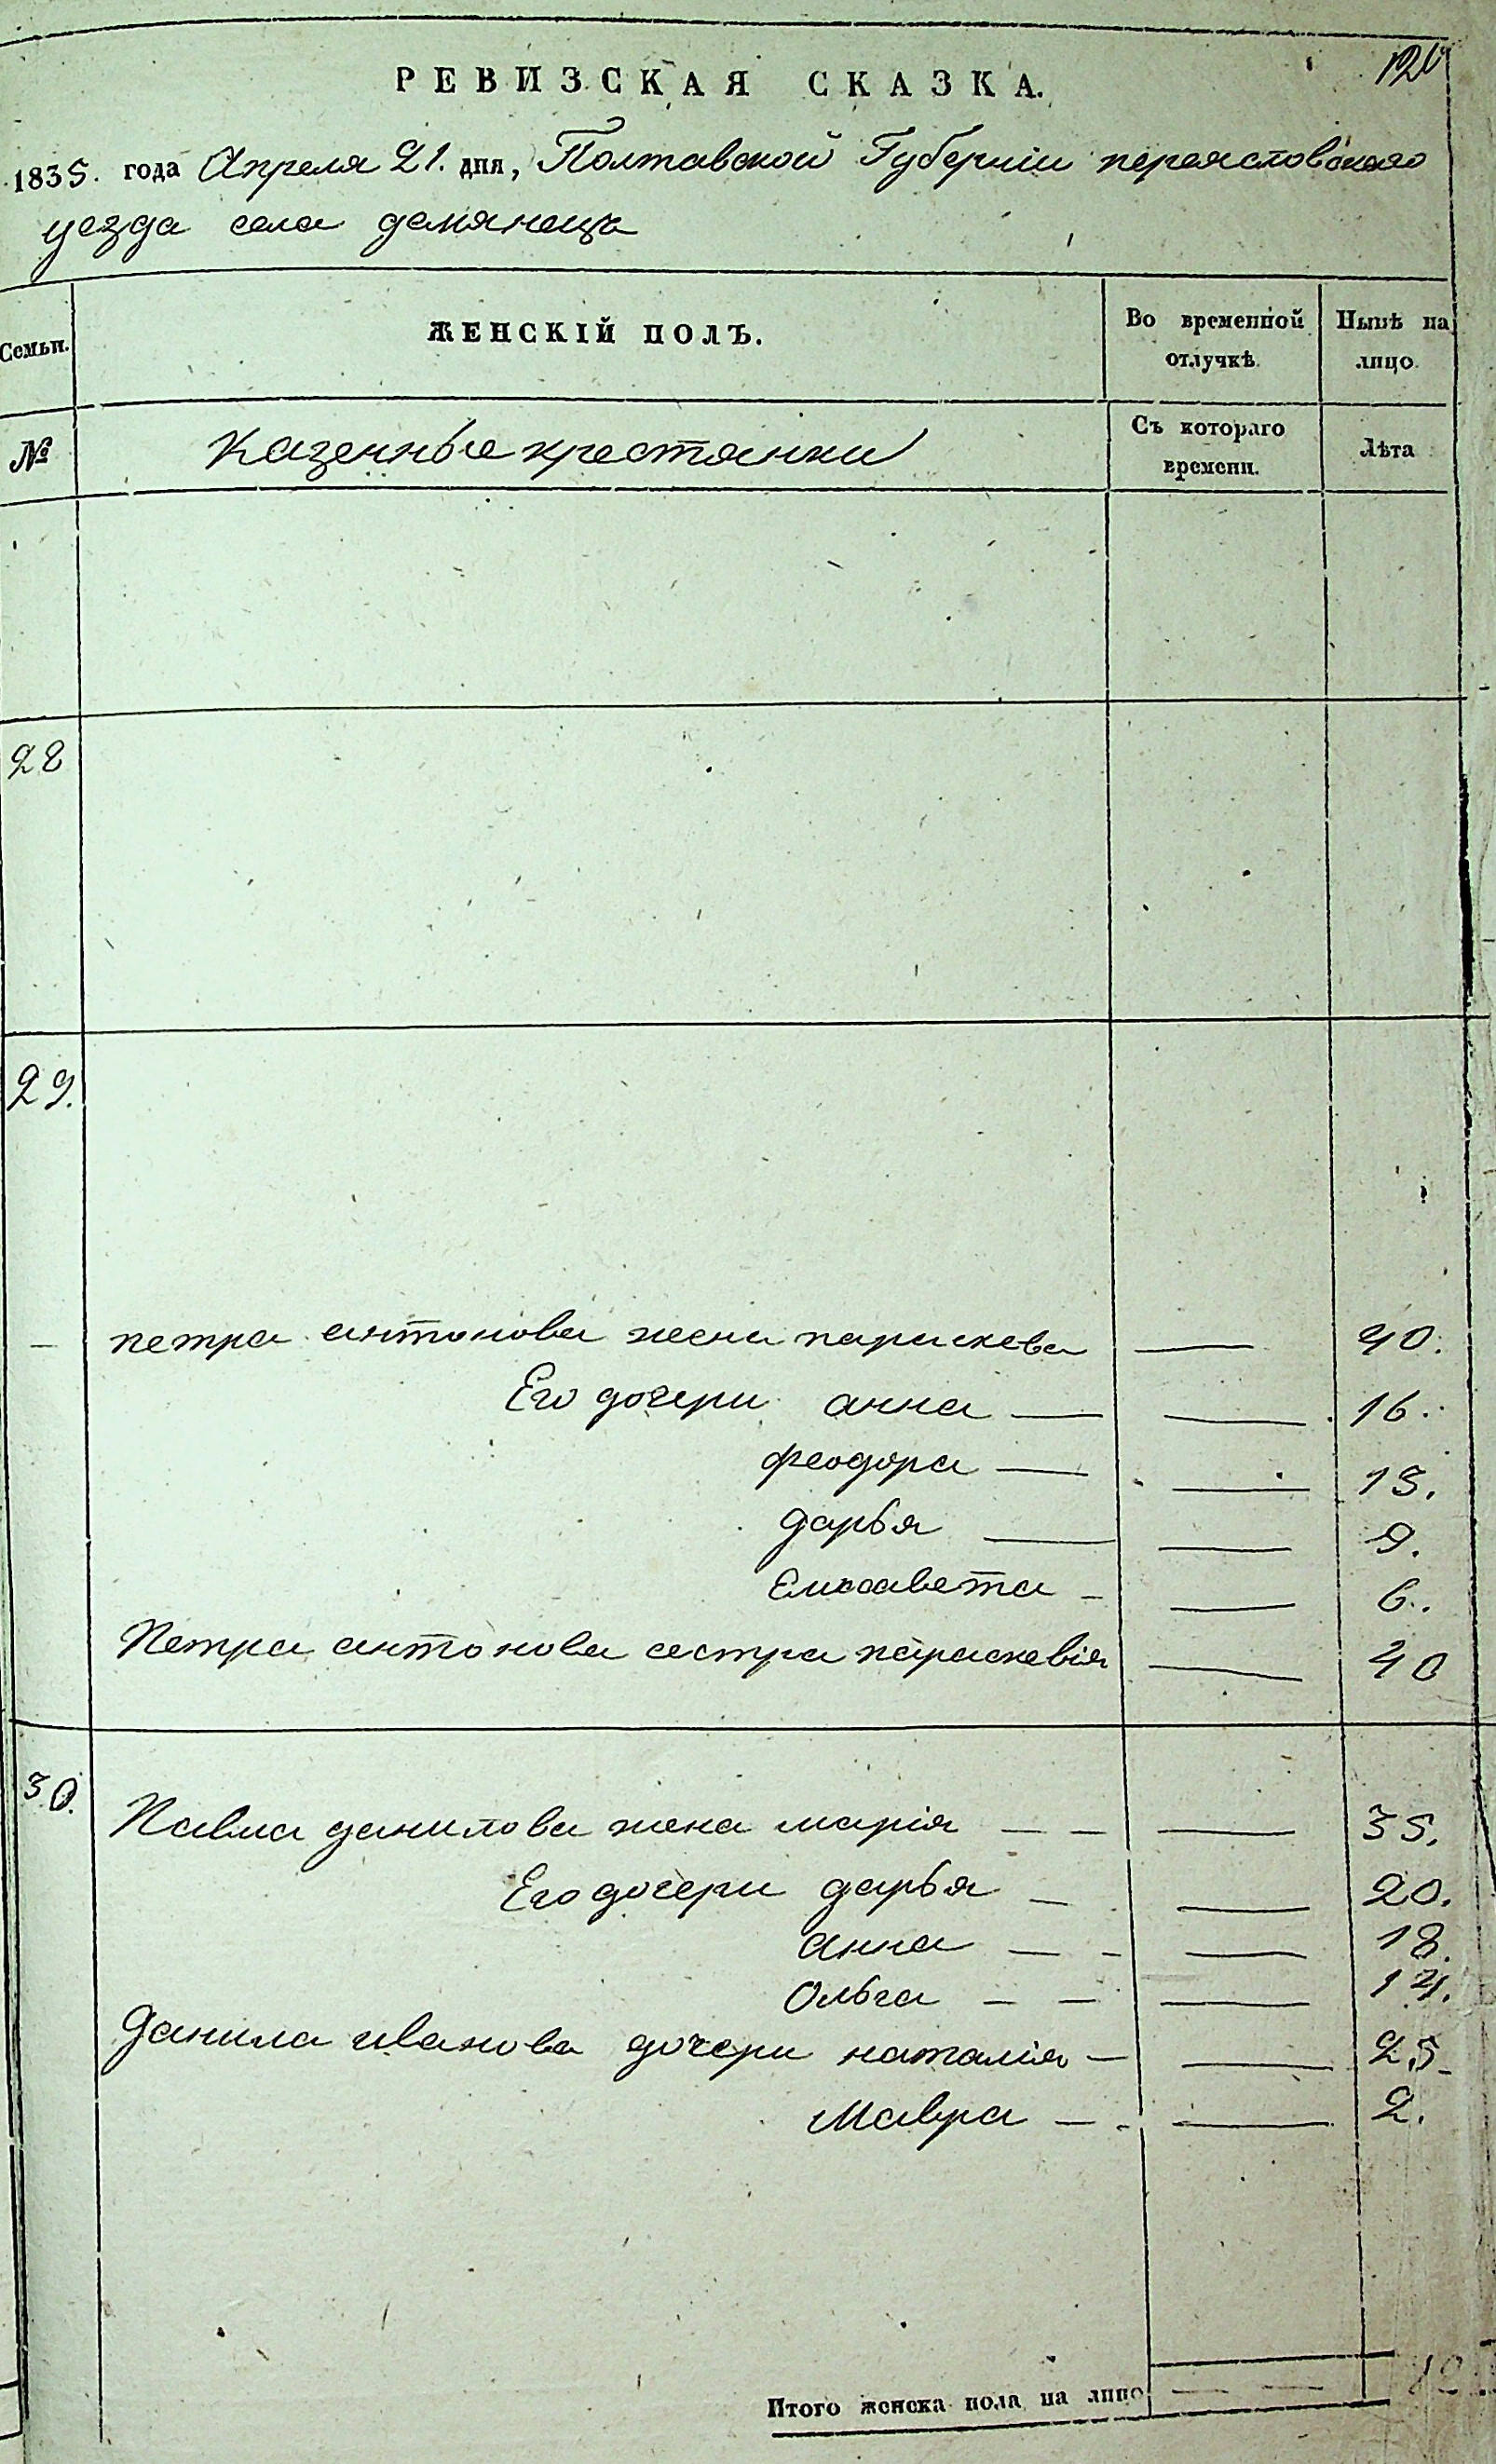 126
РЕВИЗСКАЯ СКАЗКА.
1835. года Апреля 21. дня, Полтавской Губерніи переясловского
уезда села демянецъ
Семьи. ЖЕНСКІЙ ПОЛЪ. Во временной отлучкѣ. Нынѣ на лицо.
№ Казенные крестянки Съ котораго времени. Лѣта
28
29.
— петра антонова жена параскева — 40.
Его дочери анна — — 16.
феодора — — 13.
дарья — — 9.
Елисавета - — 6.
Петра антонова сестра параскевія — 40
30.
Павла данилова жена марія — — — 35.
Его дочери дарья — — 20.
анна — - — 18.
Ольга — — — 14.
данила иванова дочери наталія — — 25
Мавра — - — 2.
Итого женска пола на лицо — — 12